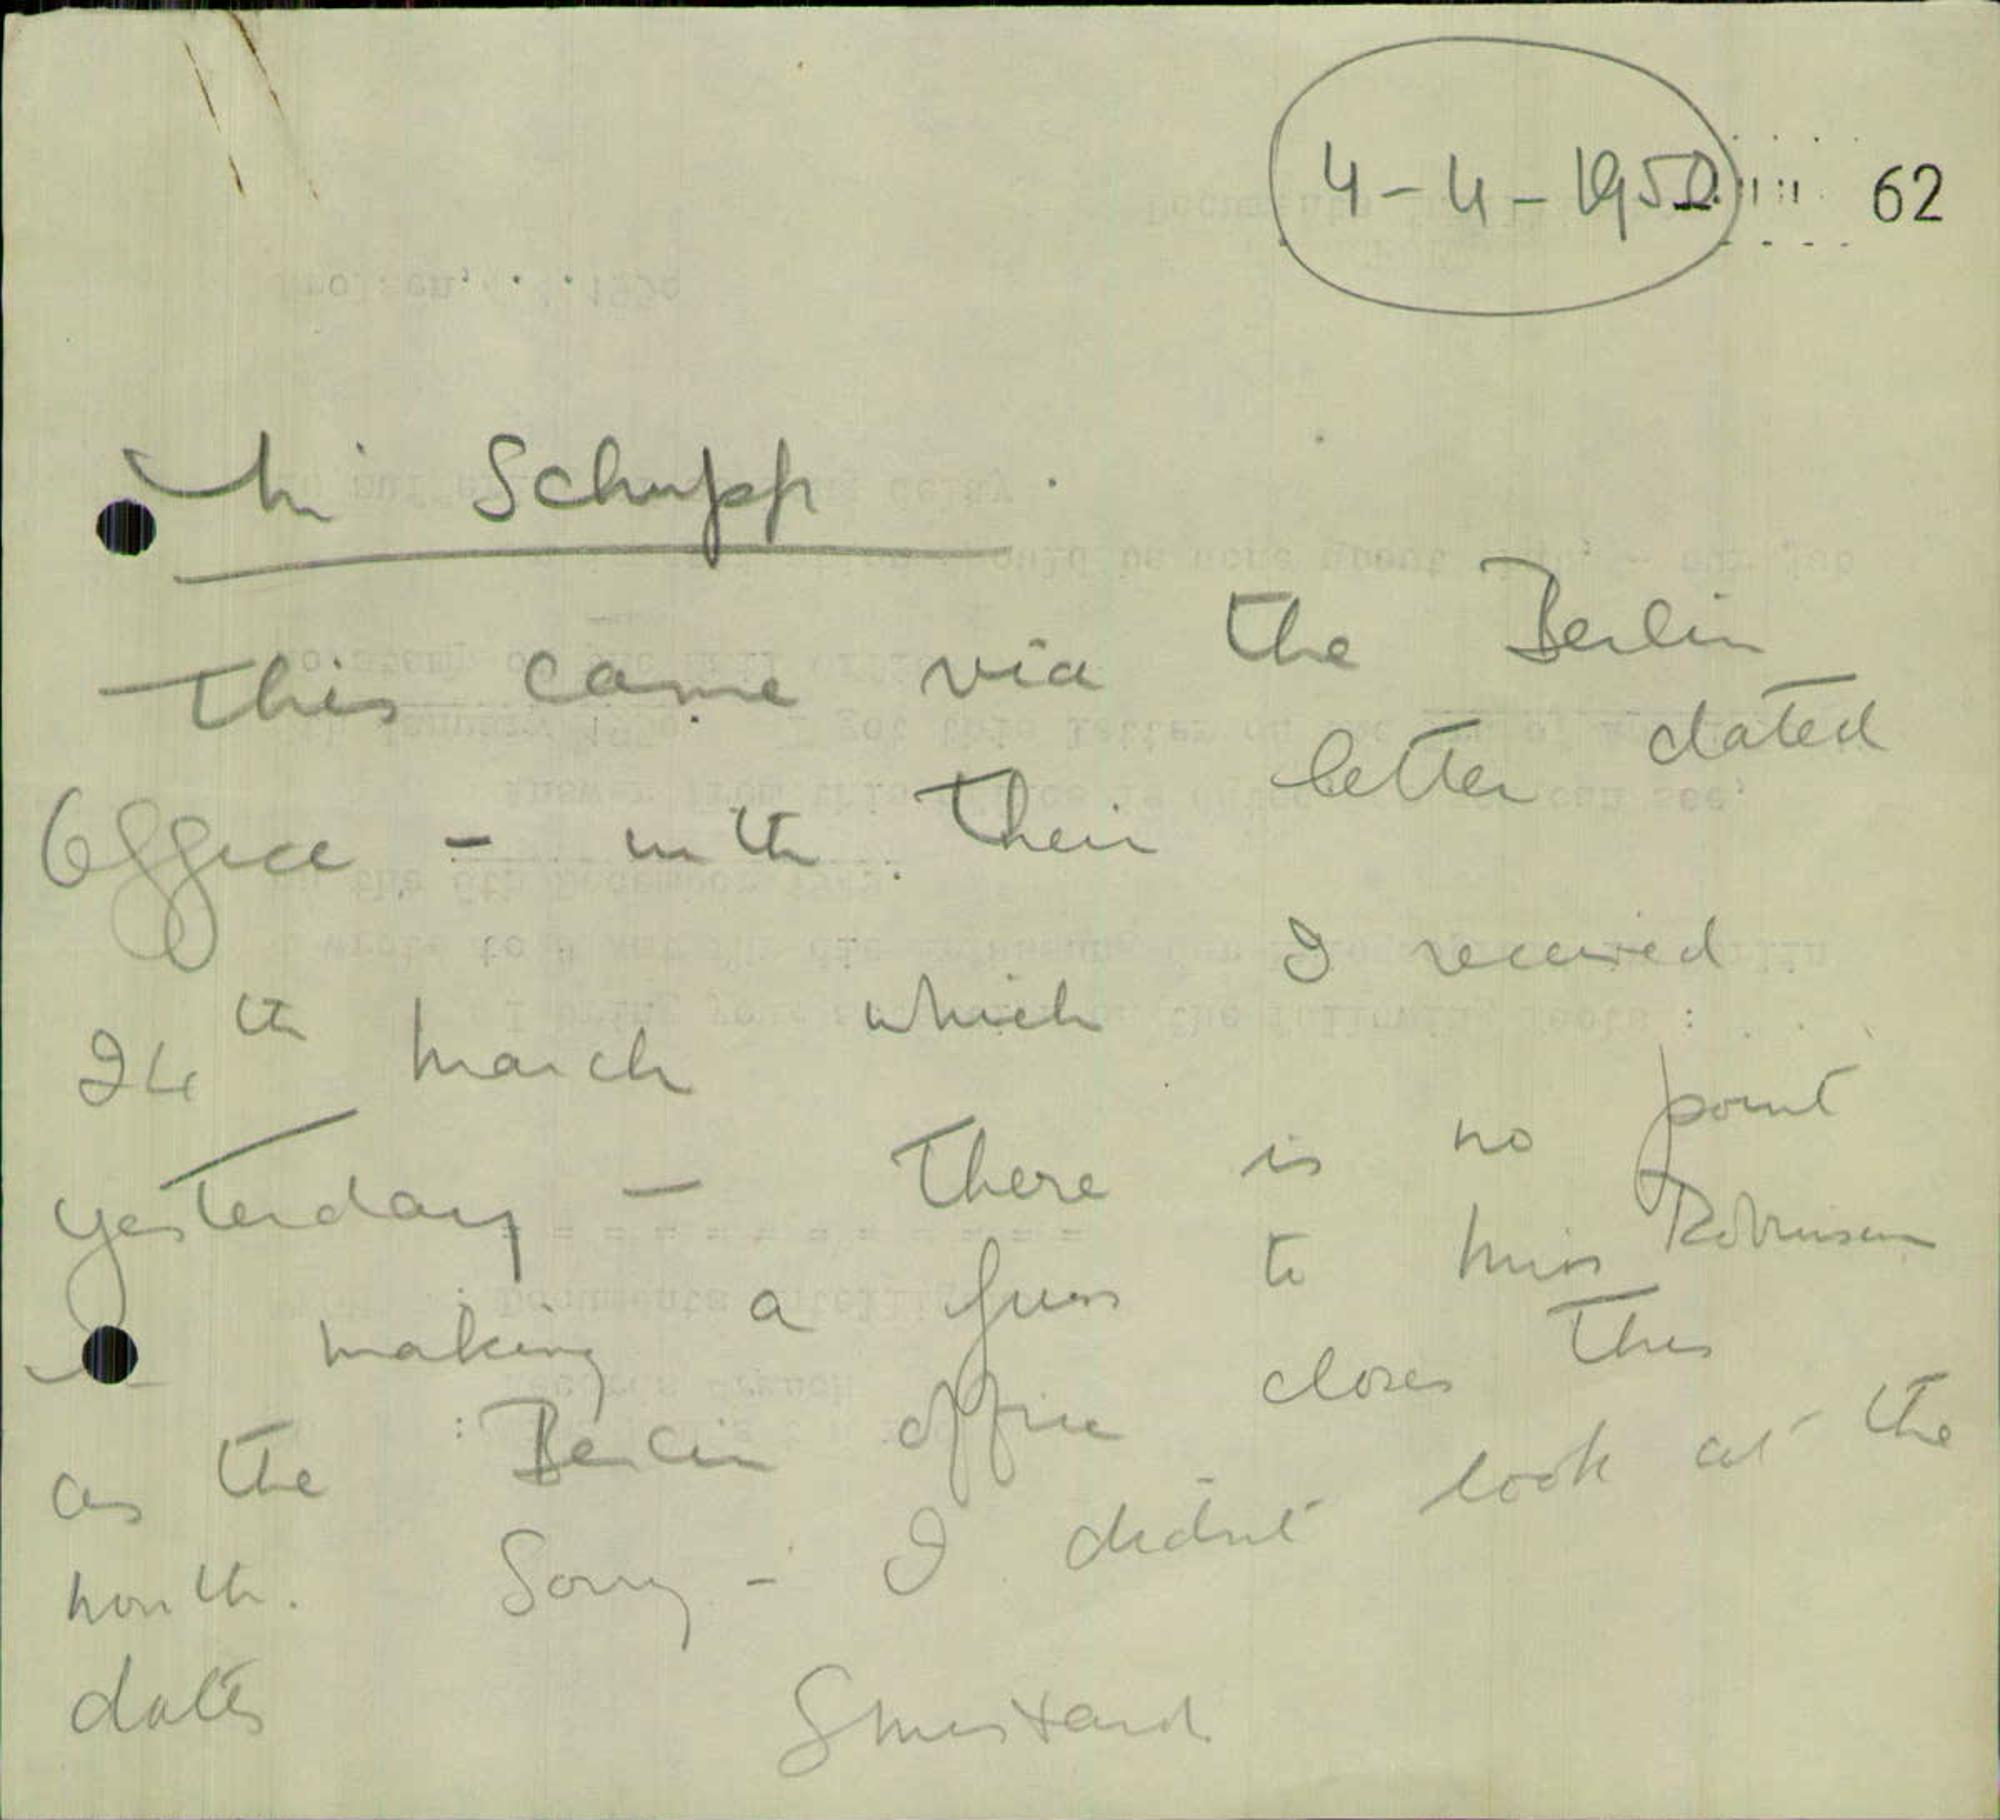 4-4-1950 62
Mr Schupp.
This came via the Berlin
Office - with their letter dated
24th March which I received
yesterday - There is no point
in making a fuss to Miss Robinson
as the Berlin office closes this
month. Sorry - I didn't look at the
dates